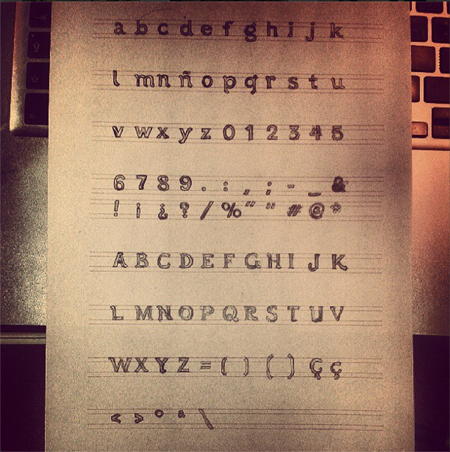 a b c d e f g h i j k
l m n ñ o p q r s t u
v w x y z 0 1 2 3 4 5
6 7 8 9 . : , ; - _ &
! ¡ ¿ ? / % " " # @ *
A B C D E F G H I J K
L M N O P Q R S T U V
W X Y Z = ( ) ( ) Ç ç
< > º ª \